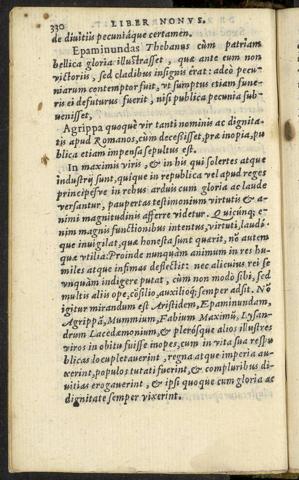 330 LIBER NONVS.
de diuitiis pecuniáque certamen.
Epaminundas Thebanus cùm patriam
bellica gloria illustrasset, quæ ante eum non
victoriis, sed cladibus insignis erat: adeò pecu-
niarum contemptor fuit, vt sumptus etiam fune-
ris ei defuturus fuerit, nisi publica pecunia sub-
uenisset.
Agrippa quoquè vir tanti nominis ac dignita-
tis apud Romanos, cùm decessisset, præ inopia, pu
blica etiam impensa sepultus est.
In maximis viris, & in his qui solertes atque
industrij sunt, quique in republica vel apud reges
principésve in rebus arduis cum gloria ac laude
versantur, paupertas testimonium virtutis & a-
nimi magnitudinis afferre videtur. Quicunq; e-
nim magnis functionibus intentus, virtuti, laudí-
que inuigilat, quæ honesta sunt quærit, nō autem
quæ vtilia: Proinde nunquàm animum in res hu-
miles atque infimas deflectit: nec alicuius rei se
vnquàm indigere putat, cùm non modò sibi, sed
multis aliis ope, cōsilio, auxilióq; semper adsit. Nō
igitur mirandum est Aristidem, Epaminundam,
Agrippā, Mummium, Fabium Maximū, Lysan-
drum Lacedæmonium, & plerósque alios illustres
viros in obitu fuisse inopes, cum in vita sua respu
blicas locupletauerint, regna atque imperia au-
xerint, populos tutati fuerint, & compluribus di-
uitias erogauerint, & ipsi quoque cum gloria ac
dignitate semper vixerint.